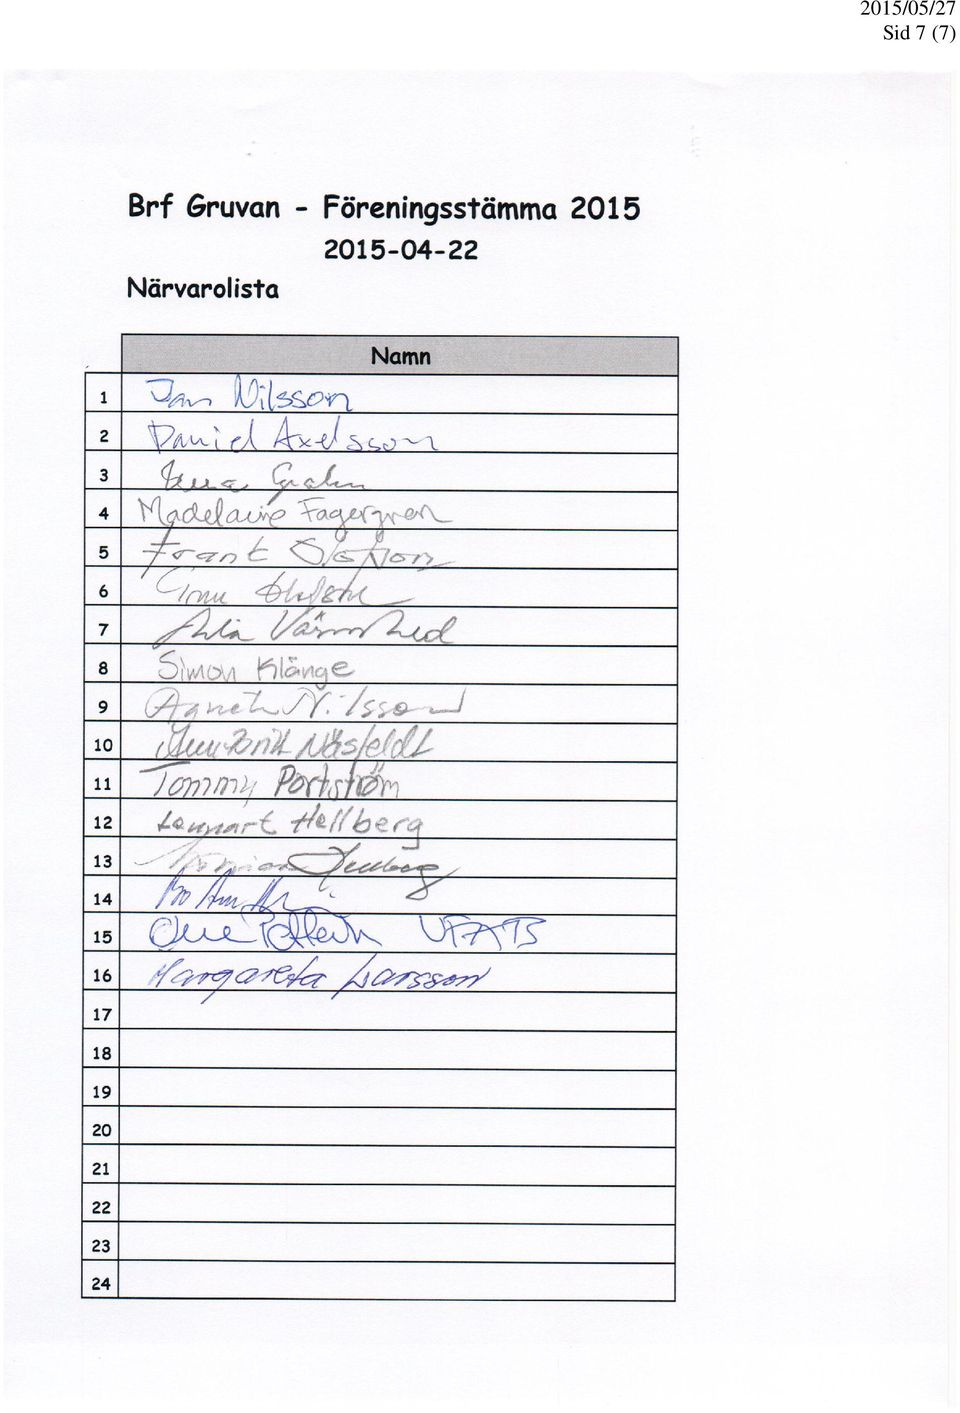 2015/05/27
Sid 7 (7)
Brf Gruvan - Föreningsstämma 2015
2015-04-22
Närvarolista
Namn
1 Jan Nilsson
2 Daniel Axelsson
3 Grahn
4 Madelaine Fagergren
5 Frank Olofson
6
7 Värmhed
8 Simon Klänge
9 Agneta Nilsson
10 Näsfeldt
11 Tommy Portström
12 Lennart Hellberg
13
14 Bo
15
16 Margareta Larsson
17
18
19
20
21
22
23
24